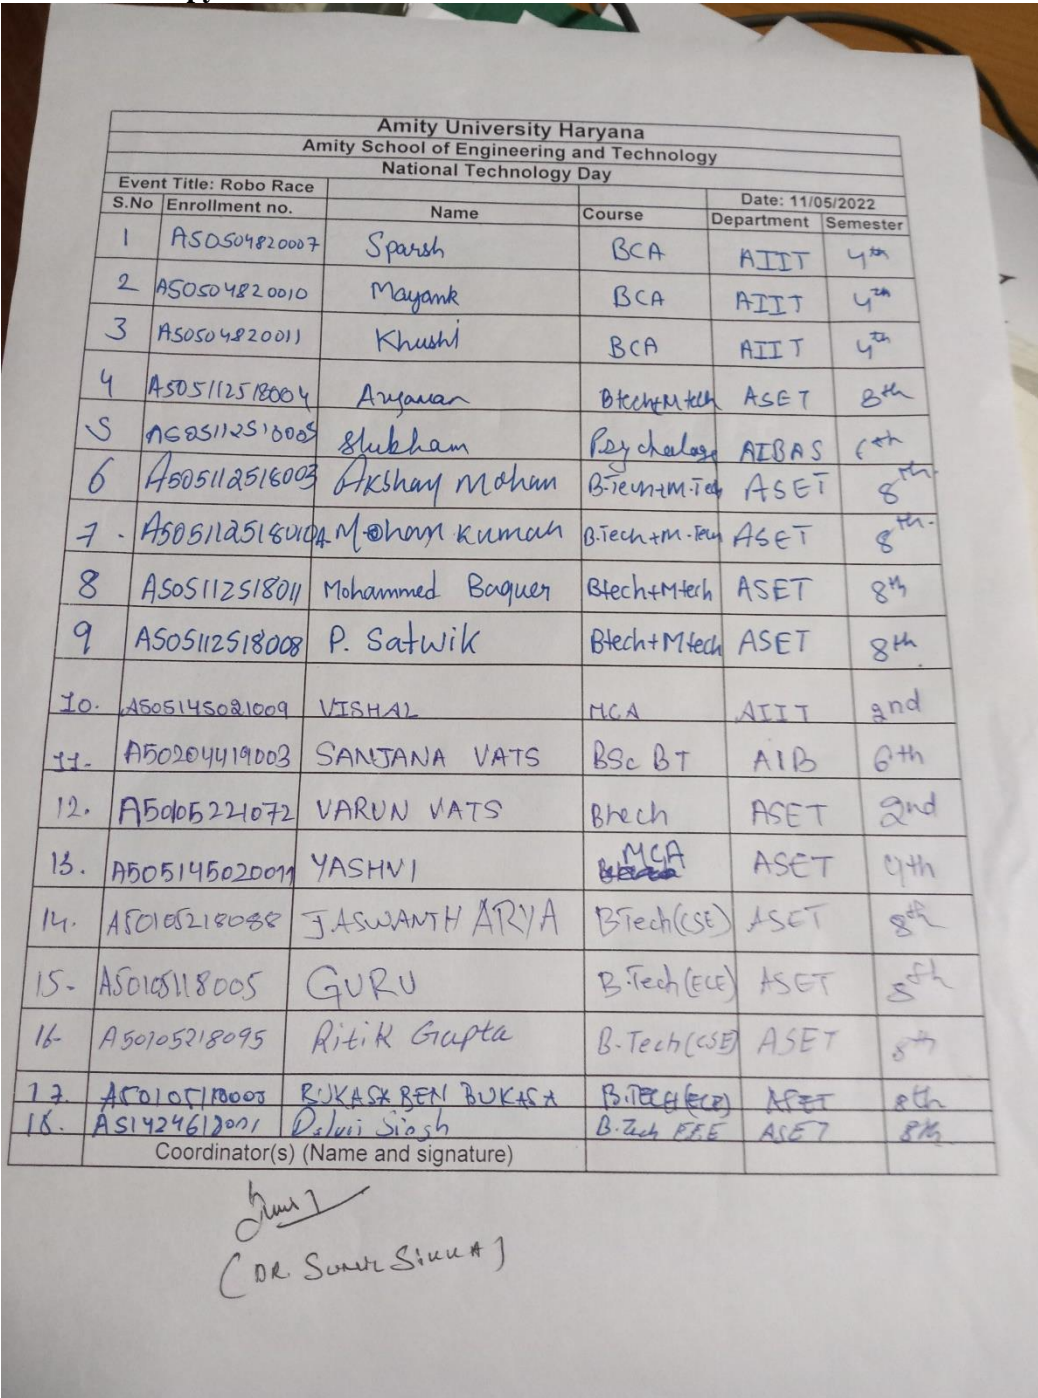 Amity University Haryana
Amity School of Engineering and Technology
National Technology Day
Event Title: Robo Race Date: 11/05/2022
S.No Enrollment no. Name Course Department Semester
1 A50504820007 Sparsh BCA AIIT 4th
2 A50504820010 Mayank BCA AIIT 4th
3 A50504820011 Khushi BCA AIIT 4th
4 A505112518004 Aryaman Btech+Mtech ASET 8th
5 Shubham Psychology AIBAS 6th
6 A505112518003 Akshay Mohan B.Tech+M.Tech ASET 8th
7. Mohan Kumar B.Tech+M.Tech ASET 8th
8 A505112518011 Mohammed Baquer Btech+Mtech ASET 8th
9 A505112518008 P. Satwik Btech+Mtech ASET 8th
10. A505145021009 VISHAL MCA AIIT 2nd
11. A50204419003 SANJANA VATS BSc BT AIB 6th
12. A50105221072 VARUN VATS Btech ASET 2nd
13. A505145020011 YASHVI MCA ASET 4th
14. A50105218088 JASWANTH ARYA BTech(CSE) ASET 8th
15- A50105118005 GURU B.Tech(ECE) ASET 8th
16- A50105218095 Ritik Gupta B.Tech(CSE) ASET 8th
17. BUKASA BEN BUKASA B.TECH(ECE) ASET 8th
18. Singh B.Tech EEE ASET 8th
Coordinator(s) (Name and signature)
(DR. SUNIL SIKKA)